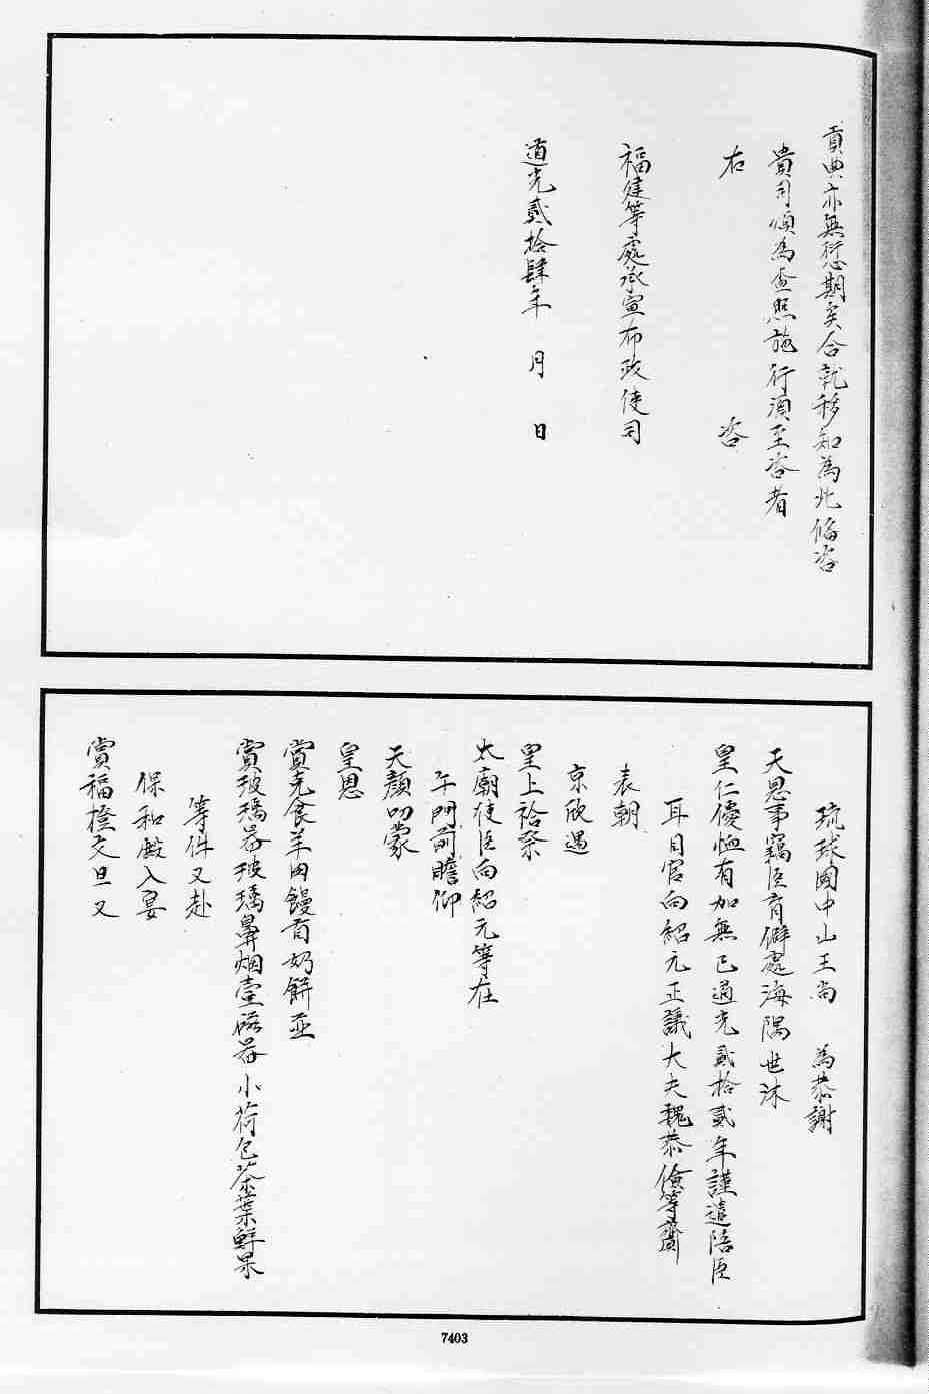 貢典亦無愆期矣合就移知為此備咨
貴司煩為查照施行須至咨者
右　　咨
福建等處承宣布政使司
道光貳拾肆年　月　日
琉球國中山王尚　為恭謝
天恩事竊臣育僻處海隅世沐
皇仁優恤有加無已道光貳拾貳年謹遣陪臣
耳目官向紹元正議大夫魏恭儉等齎
表朝
京欣遇
皇上祫祭
太廟使臣向紹元等在
午門前瞻仰
天顏叨蒙
皇恩
賞克食羊肉饅首奶餅並
賞玻璃器玻璃鼻烟壺磁器小荷包茶葉鮮果
等件又赴
保和殿入宴
賞福橙文旦又
7403